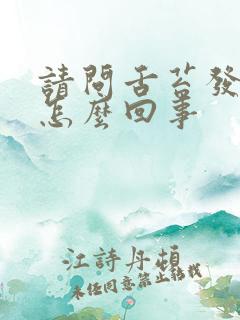 請問舌苔發
怎麼回事
江詩丹頓
未任同意禁止轉載